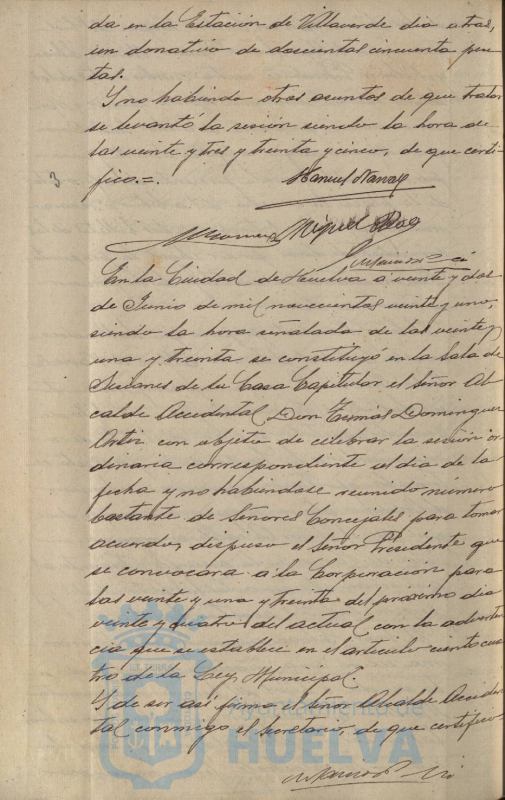 da en la Estación de Villaverde dia atras,
un donativo de doscientas cincuenta pese
tas.
Y no habiendo otros asuntos de que tratar
se levantó la sesión siendo la hora de
las veinte y tres y treinta y cinco, de que certi-
fico.=.
3
Manuel
Miguel
En la Ciudad de Huelva a veinte y dos
de Junio de mil novecientos veinte y uno,
siendo la hora señalada de las veinte y
una y treinta se constituyó en la Sala de
Sesiones de la Casa Capitular el Señor Al
calde Accidental Don Tomás Dominguez
Ortiz con objeto de celebrar la sesión or
dinaria correspondiente al dia de la
fecha y no habiendose reunido número
bastante de Señores Concejales para tomar
acuerdo, dispuso el Señor Presidente que
se convocara a la Corporación para
las veinte y una y treinta del próximo dia
veinte y cuatro del actual con la adverten
cia que se establece en el articulo ciento cua
tro de la Ley Municipal.
Y de ser asi firma el Señor Alcalde Acciden
tal conmigo el Secretario, de que certifico.
Ayuntamiento de
HUELVA